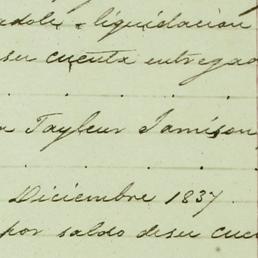 liquidacion
su cuenta entregado
Tayleur Jamison
Diciembre 1837
por saldo desu cuen